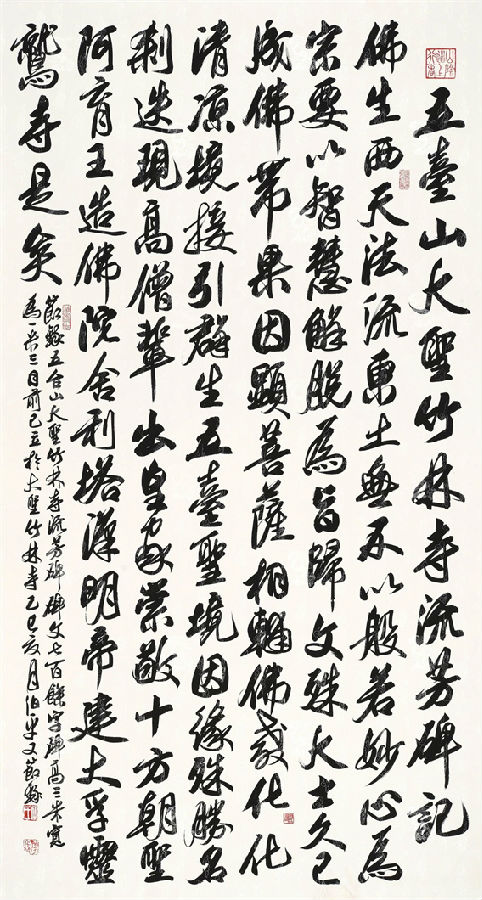 五臺山大聖竹林寺流芳碑記
佛生西天法流東土無不以般若妙心為
宗要以智慧解脫為旨歸文殊大士久已
成佛帶果因顯菩薩相輔佛教化化
清涼境接引群生五臺聖境因緣殊勝名
剎迭現高僧輩出皇家崇敬十方朝聖
阿育王造佛院舍利塔漢明帝建大孚靈
鷲寺是矣
節錄五台山大聖竹林寺流芳碑碑文七百餘字碑高三米寬
為一米三目前已立於大聖竹林寺己亥月伯牛又節錄